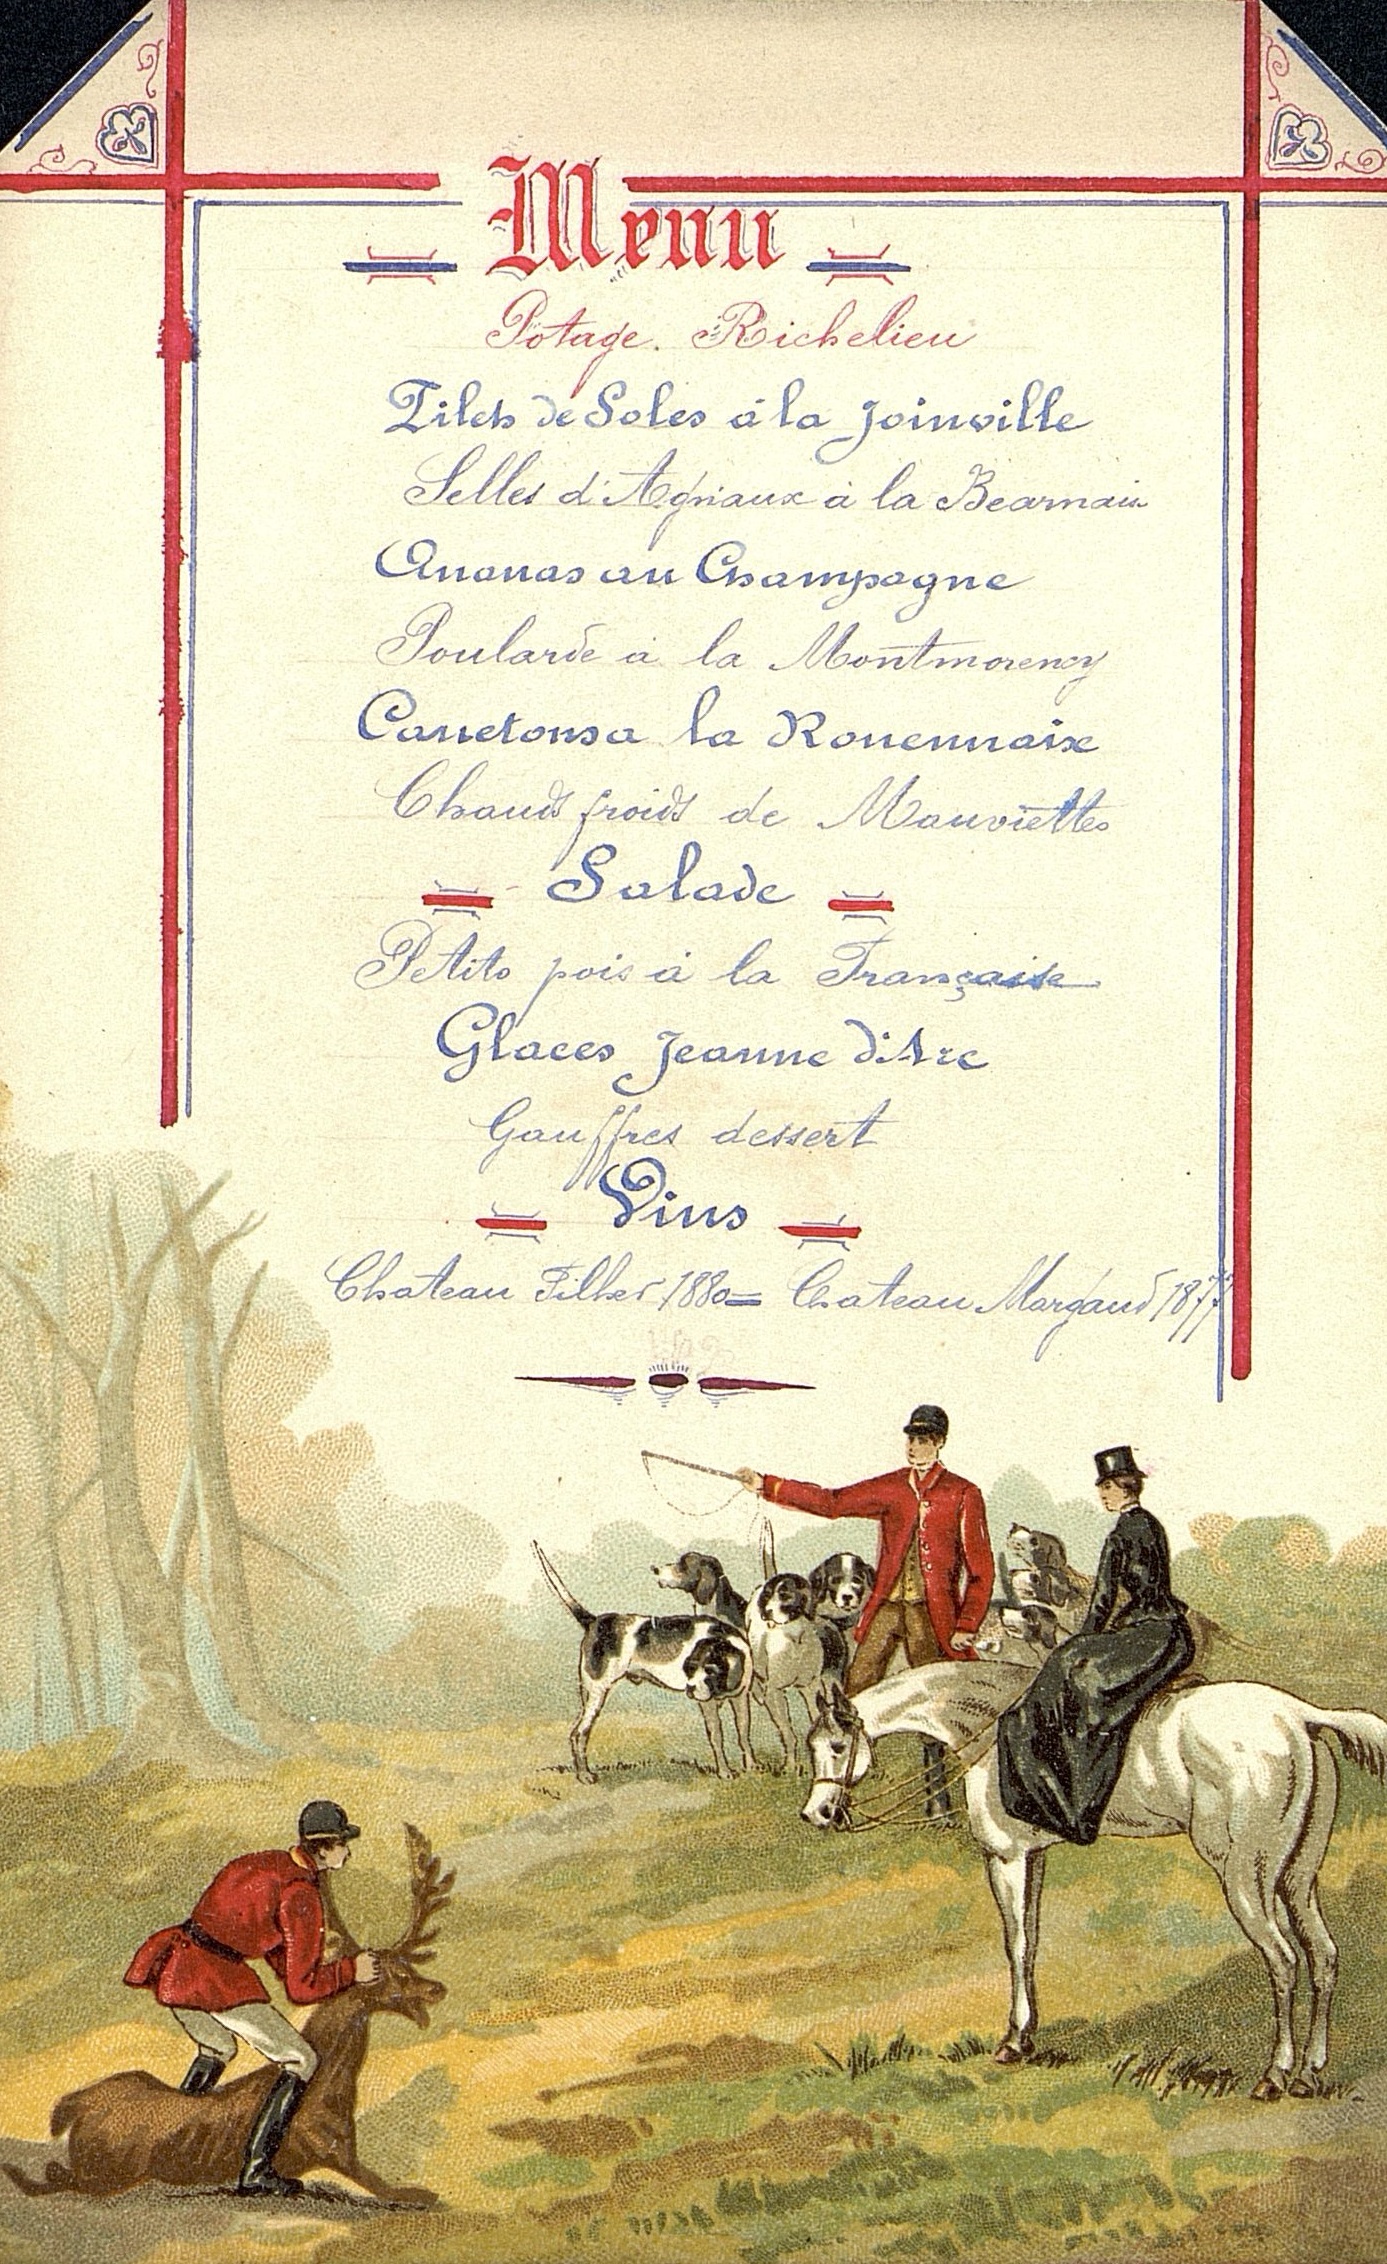 Menu
Potage. Richelieu
Filets de Soles á la Joinville
Selles d'Agnaux à la Bearnais
Ananas au Champagne
Poularde à la Montmorency
Canetons a la Rouennaise
Chauds froids de Mauviettes
Salade
Petits pois à la Française
Glaces Jeanne d'Arc
Gauffres dessert
Vins
Chateau Filhes 1880 = Chateau Margaud 1877